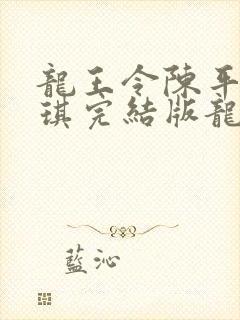 龍王令陳平
琪完結版龍
藍沁